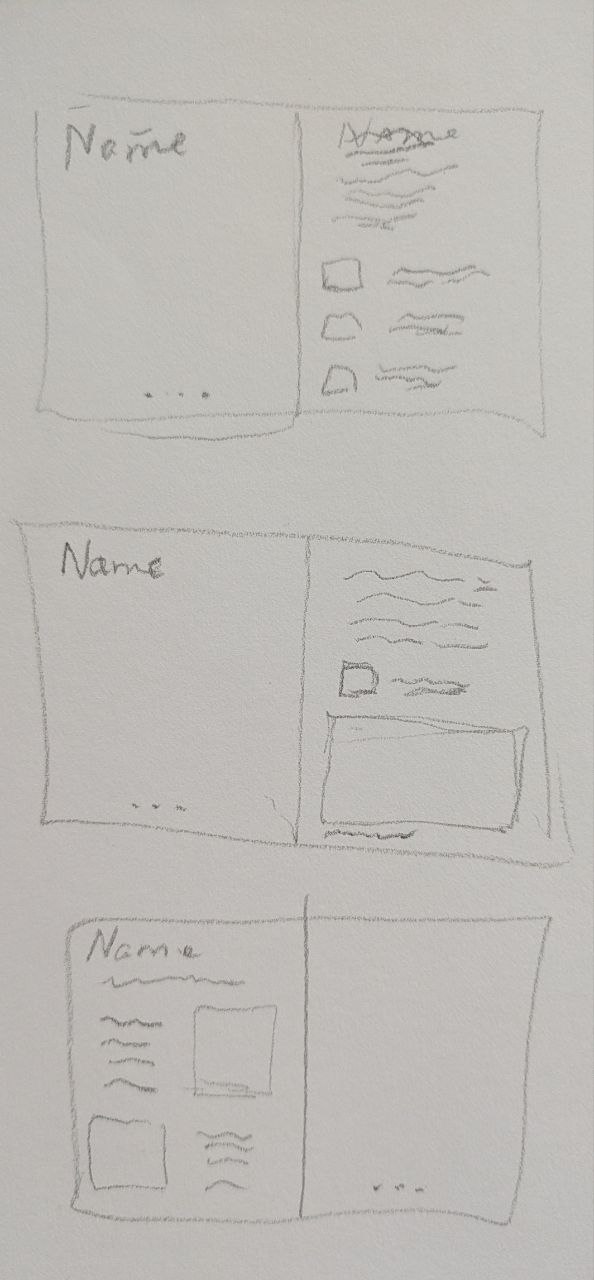 Name
Name
Name
Name